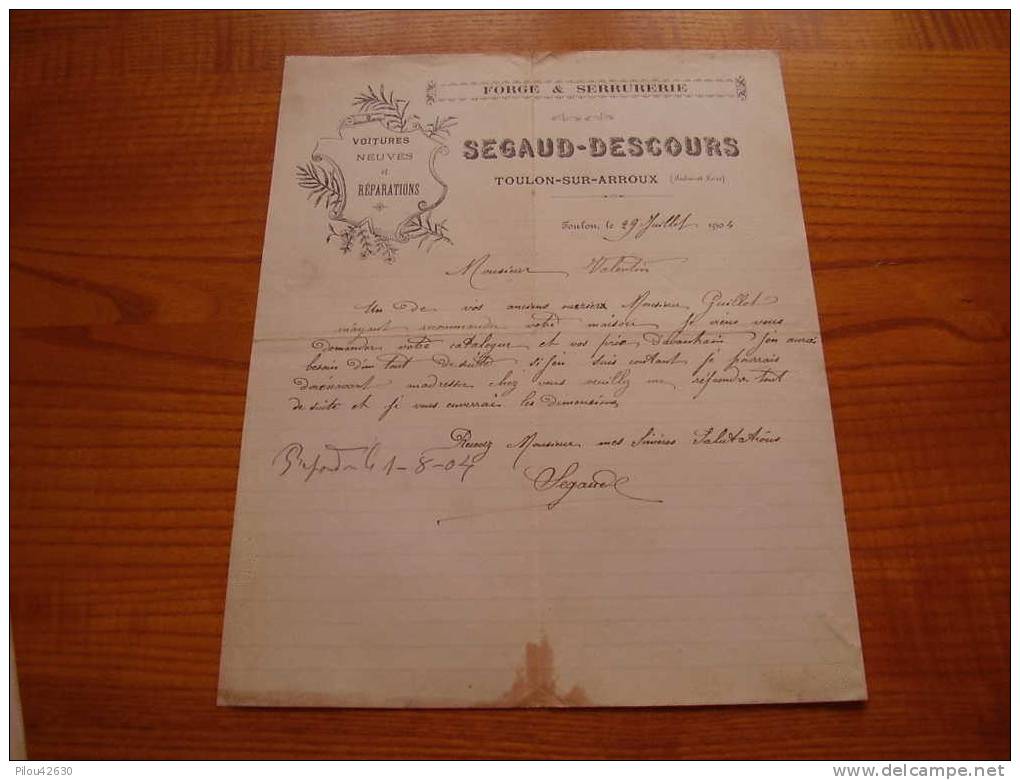 FORGE & SERRURERIE
VOITURES
NEUVES
et
RÉPARATIONS
SEGAUD-DESCOURS
TOULON-SUR-ARROUX (Saône-et-Loire)
Toulon, le 29 Juillet 1904
Monsieur Valentin
Un de vos anciens Monsieur Guillot
mayant recommander votre maison Je viens vous
demander votre catalogue et vos prix Davantrain J'en aurai
besoin d'un tout de suite si j'en suis contant je pourrais
dorénavant madresser chez vous veuillez me répondre tout
de suite et je vous enverrai les dimensions
Recevez Monsieur mes Sincères Salutations
Segaud
Répondu le 1-8-04
Pilou42630
delcampe.net